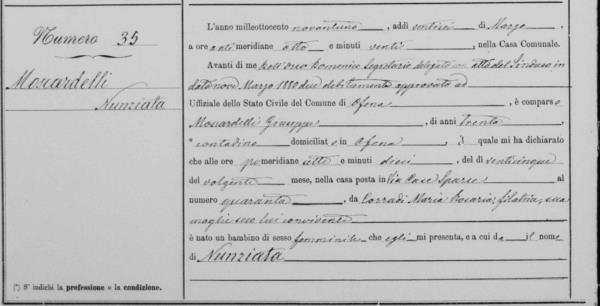 Numero 35
Moscardelli
Nunziata
(*) S' indichi la professione o la condizione.
L'anno milleottocento novantuno, addì ventisei di Marzo,
a ore anti meridiane otto e minuti venti, nella Casa Comunale.
Avanti di me Dell'Orso Domenico Segretario delegato con atto del Sindaco in
data nove Marzo 1880 due debitamente approvato ed
Uffiziale dello Stato Civile del Comune di Ofena, è comparso
Moscardelli Giuseppe, di anni trenta,
* contadino domiciliato in Ofena, il quale mi ha dichiarato
che alle ore pomeridiane sette e minuti dieci, del dì venticinque
del volgente mese, nella casa posta in Via Case Sparse al
numero quaranta, da Corradi Maria Rosaria, filatrice, sua
moglie seco lui convivente
è nato un bambino di sesso femminile che egli mi presenta, e a cui dà il nome
di Nunziata